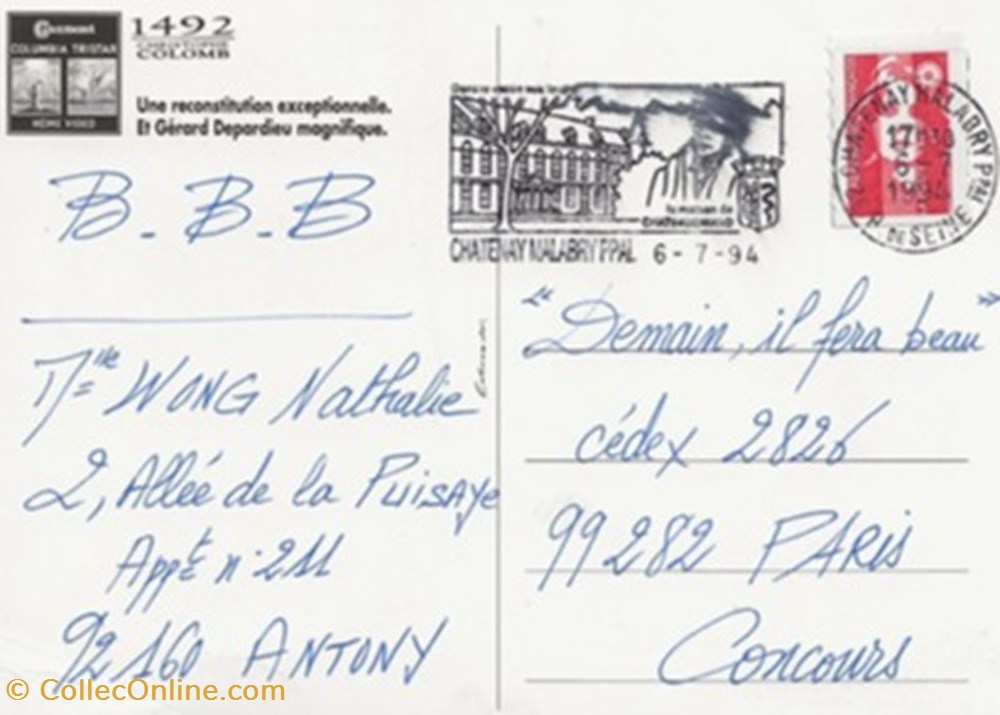 Gaumont
COLUMBIA TRISTAR
HOME VIDEO
1492
CHRISTOPHE
COLOMB
Une reconstitution exceptionnelle.
Et Gérard Depardieu magnifique.
B. B. B
Mlle WONG Nathalie
2, Allée de la PUISAYE
Appt n° 211
92160 ANTONY
la maison de
CHATEAUBRIAND
CHATENAY MALABRY PPAL 6-7-94
CHATENAY MALABRY PPAL
17H
6-7
1994
H. DE SEINE
"Demain, il fera beau"
cédex 2826
99282 PARIS
Concours
© CollecOnline.com